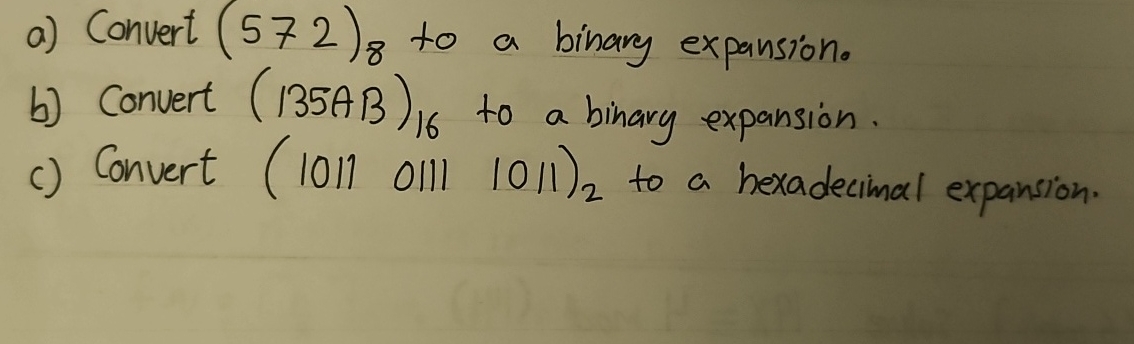 a) Convert (572)₈ to a binary expansion.
b) Convert (135AB)₁₆ to a binary expansion.
c) Convert (1011 0111 1011)₂ to a hexadecimal expansion.